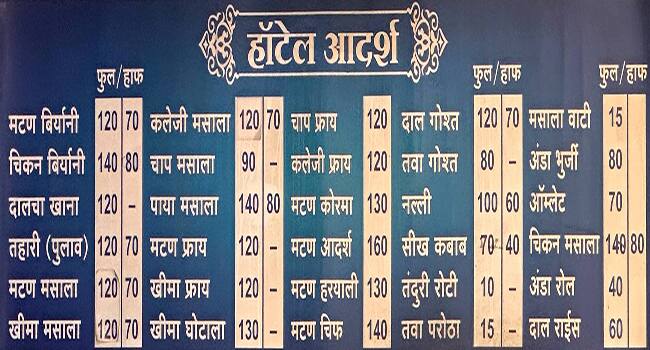 हॉटेल आदर्श
फुल/हाफ फुल/हाफ फुल/हाफ
मटण बिर्यानी 120 70 कलेजी मसाला 120 70 चाप फ्राय 120 दाल गोश्त 120 70 मसाला वाटी 15
चिकन बिर्यानी 140 80 चाप मसाला 90 - कलेजी फ्राय 120 तवा गोश्त 80 - अंडा भुर्जी 80
दालचा खाना 120 - पाया मसाला 140 80 मटण कोरमा 130 नल्ली 100 60 ऑम्लेट 70
तहारी (पुलाव) 120 70 मटण फ्राय 120 - मटण आदर्श 160 सीख कबाब 70 40 चिकन मसाला 140 80
मटण मसाला 120 70 खीमा फ्राय 120 - मटण हरयाली 130 तंदुरी रोटी 10 - अंडा रोल 40
खीमा मसाला 120 70 खीमा घोटाला 130 - मटण चिफ 140 तवा परोठा 15 - दाल राईस 60